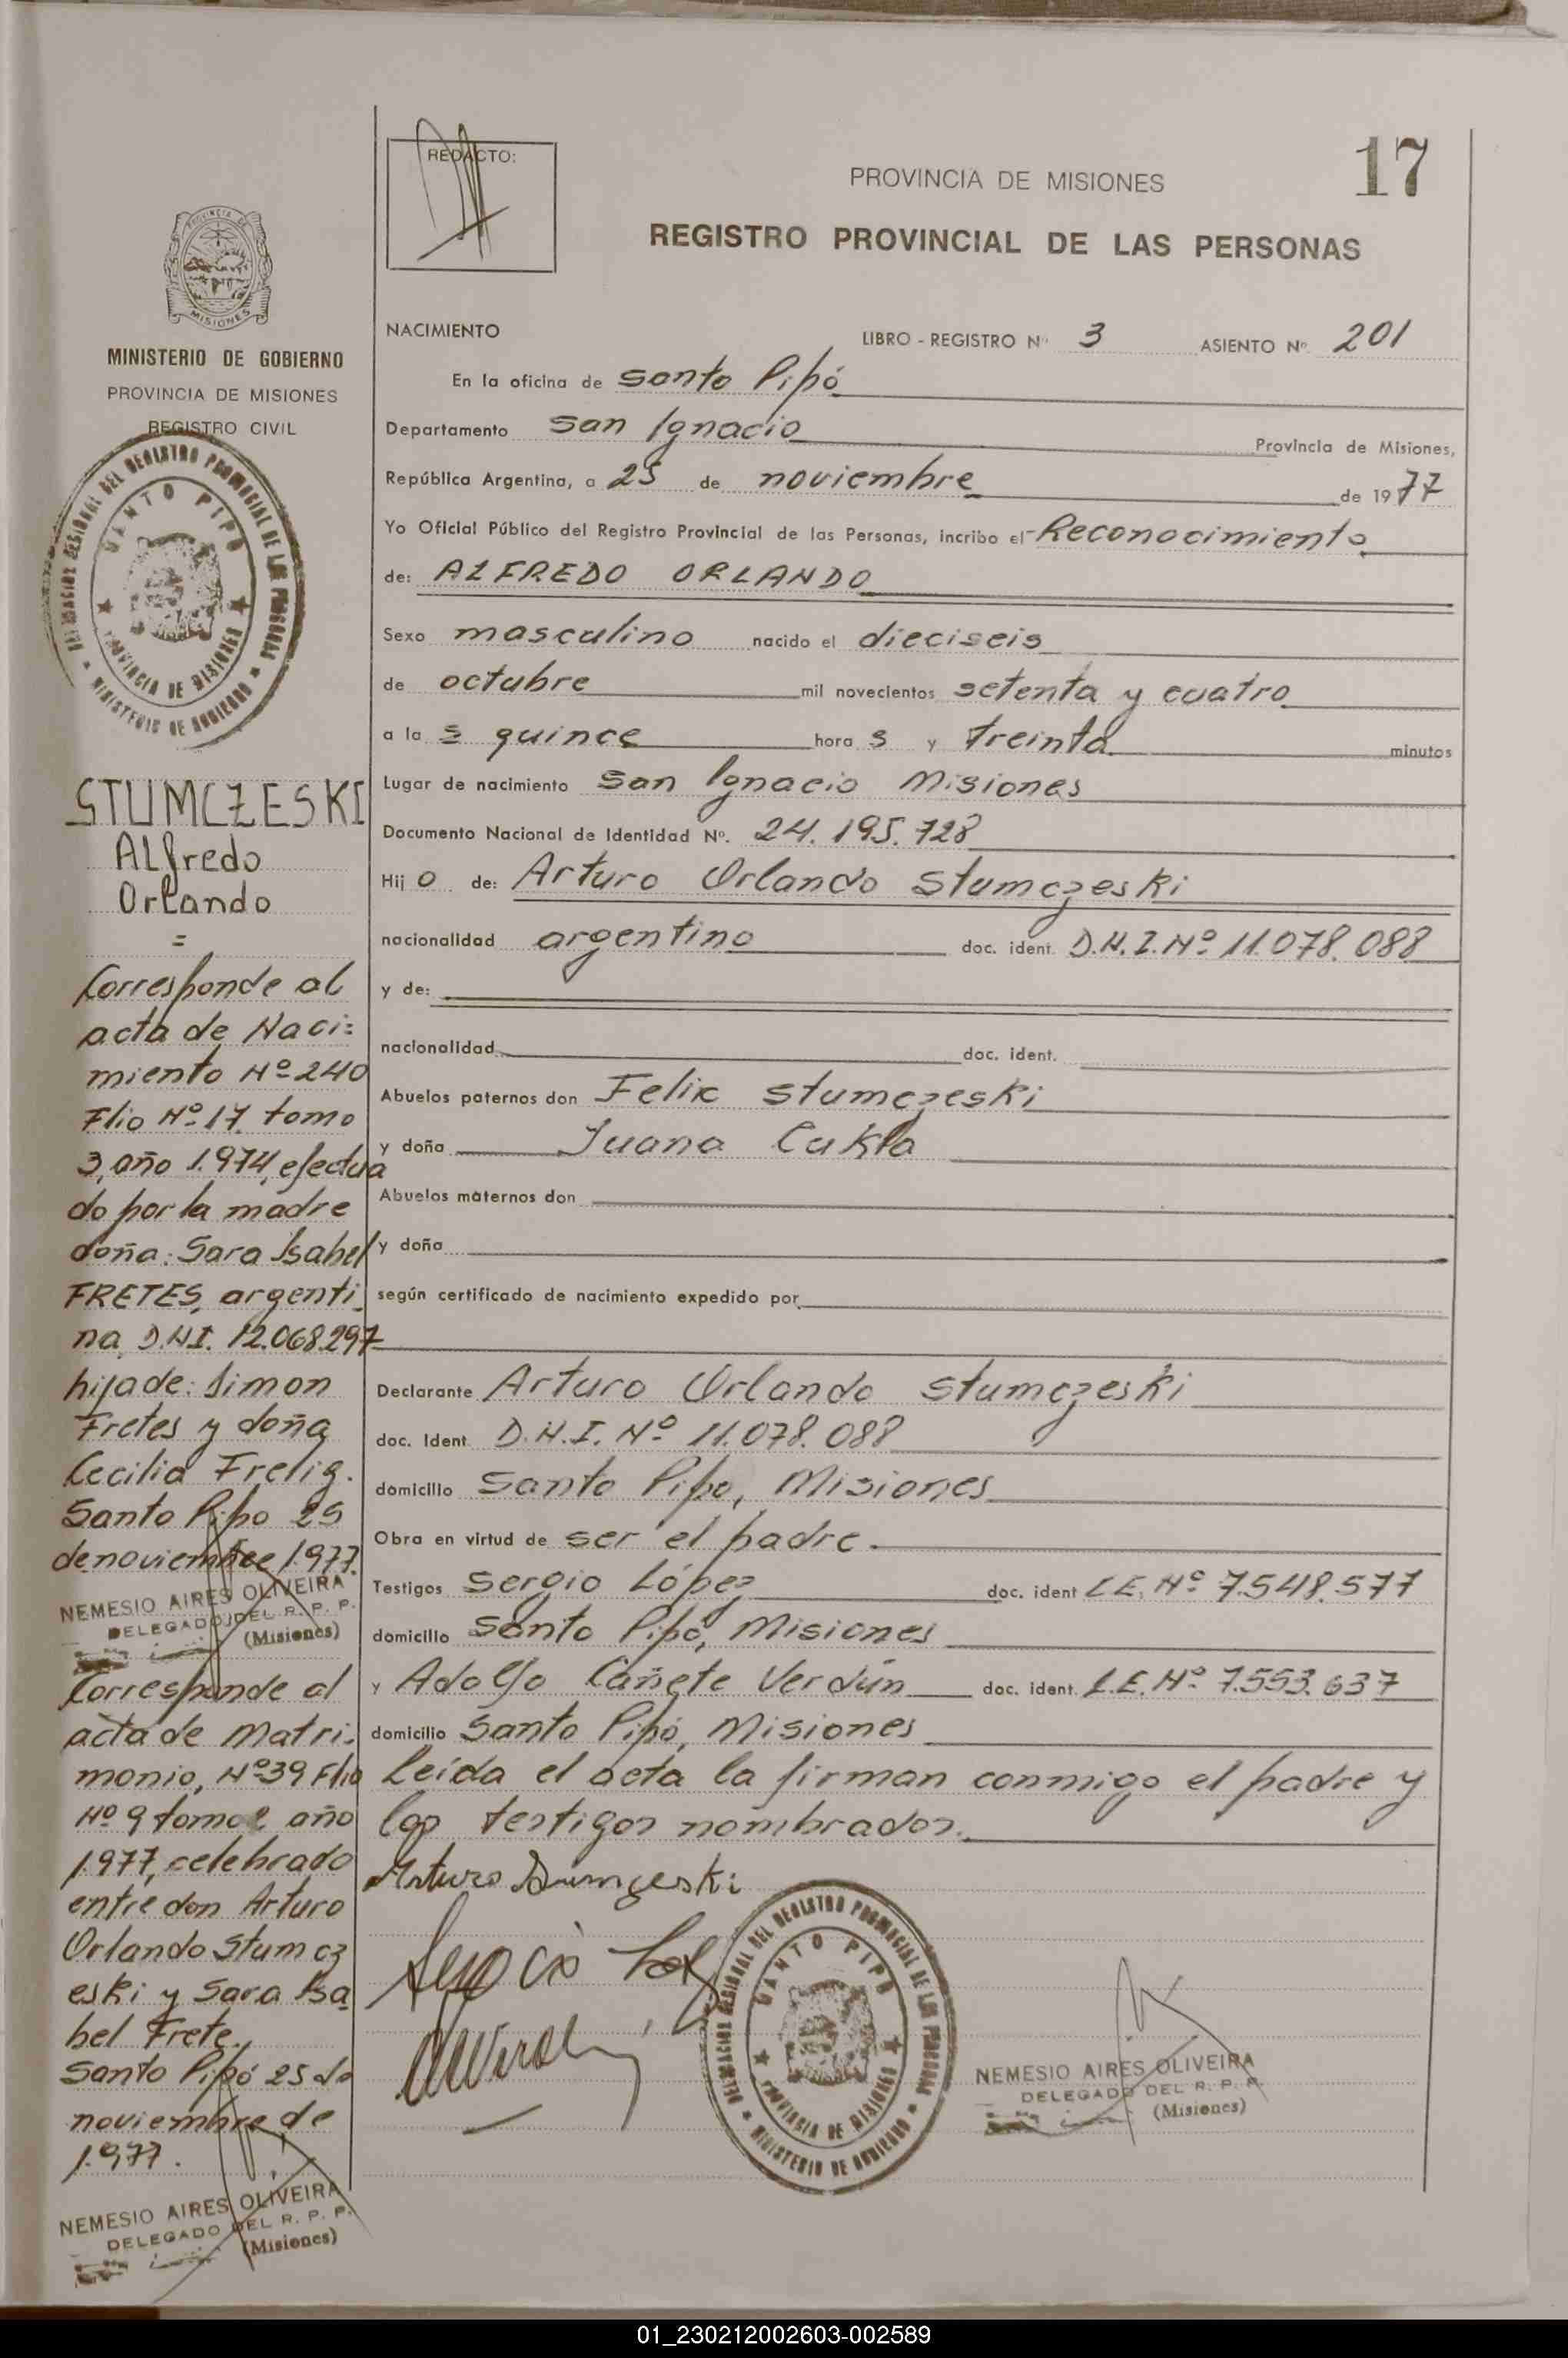 REDACTO:
PROVINCIA DE MISIONES
17
REGISTRO PROVINCIAL DE LAS PERSONAS
MISIONES
MINISTERIO DE GOBIERNO
PROVINCIA DE MISIONES
REGISTRO CIVIL
DELEGACION REGIONAL DEL REGISTRO PROVINCIAL DE LAS PERSONAS
SANTO PIPO
PROVINCIA DE MISIONES
MINISTERIO DE GOBIERNO
STUMCZESKI
ALfredo
Orlando
=
Corresponde al
acta de Naci=
miento Nº 240
Flio Nº 17 tomo
3, año 1.974, efectua
do por la madre
doña: Sara Isabel
FRETES, argenti
na, D.N.I. 12.068.297
hija de: Simon
Fretes y doña
Cecilia
Santo Pipo 25
de noviembre 1.977.
NEMESIO AIRES OLIVEIRA
DELEGADO DEL R. P. P.
(Misiones)
Corresponde al
acta de Matri=
monio, Nº 39 Flio
Nº 9 tomo 2 año
1.977, celebrado
entre don Arturo
Orlando Stumcz
eski y Sara Isa
bel Frete.
Santo Pipó 25 de
noviembre de
1.977.
NEMESIO AIRES OLIVEIRA
DELEGADO DEL R. P. P.
(Misiones)
NACIMIENTO LIBRO - REGISTRO Nº 3 ASIENTO Nº 201
En la oficina de Santo Pipó
Departamento San Ignacio Provincia de Misiones,
República Argentina, a 25 de noviembre de 1977
Yo Oficial Público del Registro Provincial de las Personas, incribo el Reconocimiento
de: ALFREDO ORLANDO
Sexo masculino nacido el dieciseis
de octubre mil novecientos setenta y cuatro
a la s quince hora s y treinta minutos
Lugar de nacimiento San Ignacio Misiones
Documento Nacional de Identidad Nº. 24.195.728
Hij o de: Arturo Orlando Stumczeski
nacionalidad argentino doc. ident. D.N.I. Nº 11.078.088
y de:
nacionalidad doc. ident.
Abuelos paternos don Felix Stumczeski
y doña Juana Cukla
Abuelos maternos don
y doña
según certificado de nacimiento expedido por
Declarante Arturo Orlando Stumczeski
doc. Ident D.N.I. Nº 11.078.088
domicilio Santo Pipo, Misiones
Obra en virtud de ser el padre.
Testigos Sergio López doc. ident L.E. Nº 7.548.577
domicilio Santo Pipó, Misiones
y Adolfo Cañete Verdún doc. ident. L.E. Nº 7.553.637
domicilio Santo Pipó, Misiones
Leída el acta la firman conmigo el padre y
los testigos nombrados.
Arturo Stumczeski
DELEGACION REGIONAL DEL REGISTRO PROVINCIAL DE LAS PERSONAS
SANTO PIPO
PROVINCIA DE MISIONES
MINISTERIO DE GOBIERNO
NEMESIO AIRES OLIVEIRA
DELEGADO DEL R. P. P.
(Misiones)
01_230212002603-002589